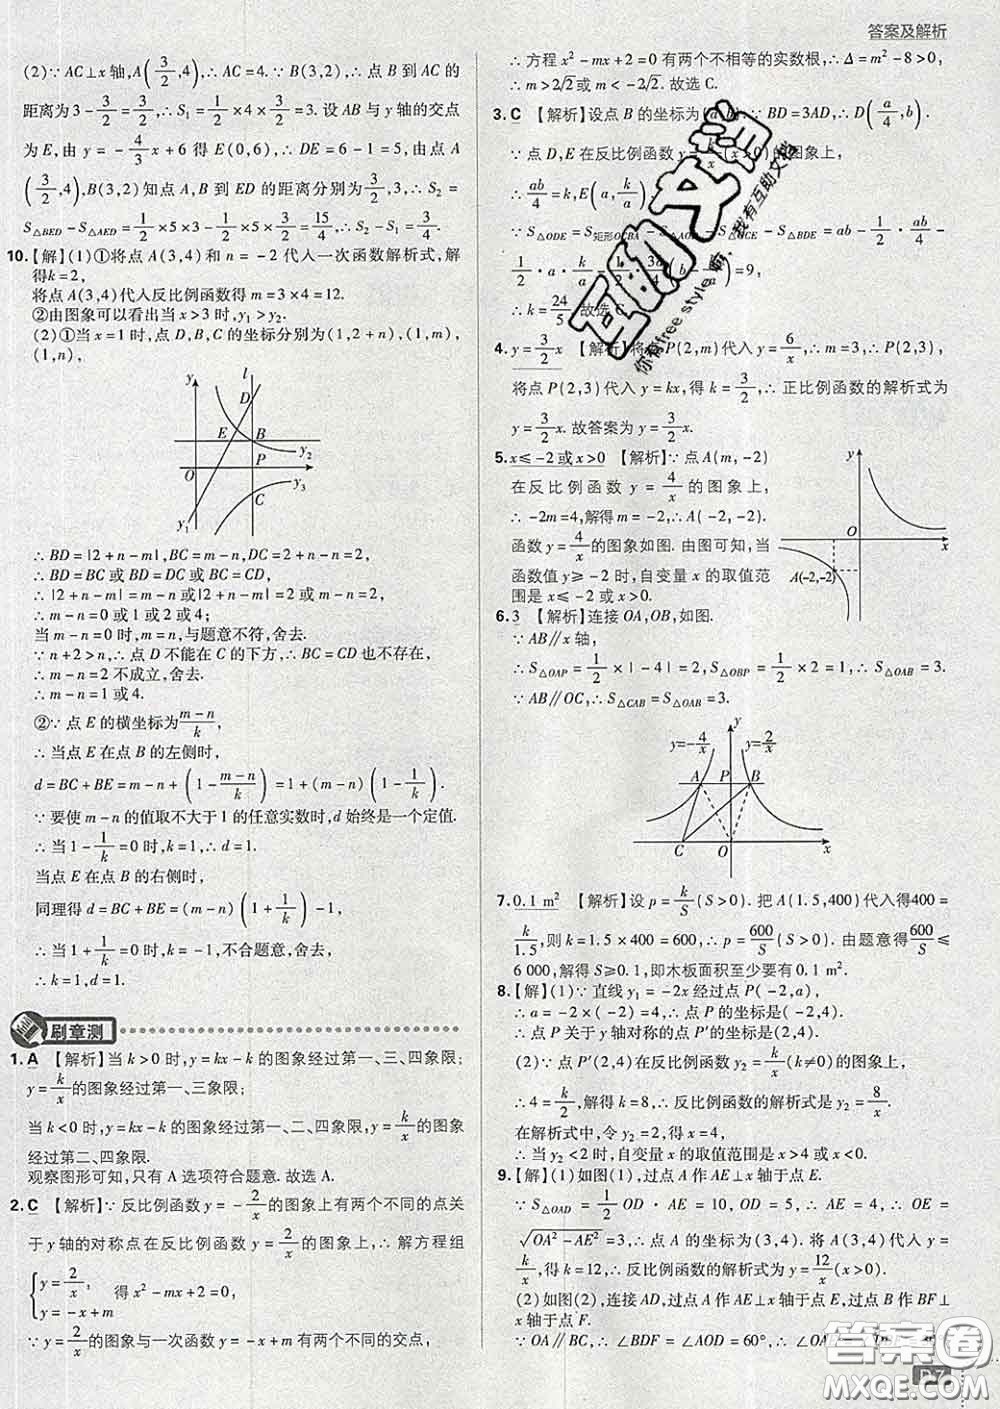 答案及解析
(2)∵AC⊥x轴,A(3/2,4),∴AC=4.∵B(3,2),∴点B到AC的
距离为3-3/2=3/2,∴S₁=1/2×4×3/2=3.设AB与y轴的交点
为E,由y=-4/3x+6得E(0,6),∴DE=6-1=5,由点A
(3/2,4),B(3,2)知点A,B到ED的距离分别为3/2,3,∴S₂=
S△BED-S△AED=1/2×5×3-1/2×5×3/2=15/4,∴S₂-S₁=3/4.
10.【解】(1)①将点A(3,4)和n=-2代入一次函数解析式,解
得k=2,
将点A(3,4)代入反比例函数得m=3×4=12.
②由图象可以看出当x>3时,y₁>y₂.
(2)①当x=1时,点D,B,C的坐标分别为(1,2+n),(1,m),
(1,n),
y l D E B y₂ O P x y₃ C y₁
∴BD=|2+n-m|,BC=m-n,DC=2+n-n=2,
∴BD=BC或BD=DC或BC=CD,
∴|2+n-m|=m-n或|2+n-m|=2或m-n=2,
∴m-n=1或0或2或4;
当m-n=0时,m=n,与题意不符,舍去.
∵n+2>n,∴点D不能在C的下方,∴BC=CD也不符,舍去,
∴m-n=2不成立,舍去,
∴m-n=1或4.
②∵点E的横坐标为(m-n)/k,
∴当点E在点B的左侧时,
d=BC+BE=m-n+(1-(m-n)/k)=1+(m-n)(1-1/k).
∵要使m-n的值取不大于1的任意实数时,d始终是一个定值.
∴当1-1/k=0时,k=1,∴d=1.
当点E在点B的右侧时,
同理得d=BC+BE=(m-n)(1+1/k)-1,
∴当1+1/k=0时,k=-1,不合题意,舍去;
∴k=1,d=1.
刷章测
1.A 【解析】当k>0时,y=kx-k的图象经过第一、三、四象限;
y=k/x的图象经过第一、三象限;
当k<0时,y=kx-k的图象经过第一、二、四象限,y=k/x的图象
经过第二、四象限.
观察图形可知,只有A选项符合题意.故选A.
2.C 【解析】∵反比例函数y=-2/x的图象上有两个不同的点关
于y轴的对称点在反比例函数y=2/x的图象上,∴解方程组
{y=2/x, y=-x+m 得x²-mx+2=0,
∵y=2/x的图象与一次函数y=-x+m有两个不同的交点,
∴方程x²-mx+2=0有两个不相等的实数根,∴Δ=m²-8>0,
∴m>2√2或m<-2√2.故选C.
3.C 【解析】设点B的坐标为(a,b).∵BD=3AD,∴D(a/4,b).
∵点D,E在反比例函数y=k/x(x>0)的图象上,
∴ab/4=k,E(a,k/a)
∵S△ODE=S矩形OCBA-S△AOD-S△OCE-S△BDE=ab-1/2·
=9,
∴k=24/5.故选C.
4.y=3/2x 【解析】将点P(2,m)代入y=6/x,∴m=3,∴P(2,3),
将点P(2,3)代入y=kx,得k=3/2,∴正比例函数的解析式为
y=3/2x.故答案为y=3/2x.
5.x≤-2或x>0 【解析】∵点A(m,-2)
在反比例函数y=4/x的图象上,
∴-2m=4,解得m=-2,∴A(-2,-2).
函数y=4/x的图象如图.由图可知,当
函数值y≥-2时,自变量x的取值范
围是x≤-2或x>0.
y O x A(-2,-2)
6.3 【解析】连接OA,OB,如图.
∵AB∥x轴,
∴S△OAP=1/2×|-4|=2,S△OBP=1/2×2=1,∴S△OAB=3.
∵AB∥OC,∴S△CAB=S△OAB=3.
y=-4/x y y=2/x A P B C O x
7.0.1 m² 【解析】设p=k/S(S>0).把A(1.5,400)代入得400=
k/1.5,则k=1.5×400=600,∴p=600/S(S>0).由题意得600/S≤
6 000,解得S≥0.1,即木板面积至少要有0.1 m².
8.【解】(1)∵直线y₁=-2x经过点P(-2,a),
∴a=-2×(-2)=4,∴P(-2,4),
∴点P关于y轴对称的点P′的坐标为(2,4).
(2)∵点P′(2,4)在反比例函数y₂=k/x(k≠0)的图象上,
∴4=k/2,解得k=8,∴反比例函数的解析式是y₂=8/x.
在解析式中,令y₂=2,得x=4,
∴当y₂<2时,自变量x的取值范围是x>4或x<0.
9.【解】(1)如图(1),过点A作AE⊥x轴于点E.
∵S△OAD=1/2 OD·AE=10,OD=5,∴AE=4,∴OE=
√(OA²-AE²)=3,∴点A的坐标为(3,4).将A(3,4)代入y=
k/x,得k=12,∴反比例函数的解析式为y=12/x(x>0).
(2)如图(2),连接AD,过点A作AE⊥x轴于点E,过点B作BF⊥
x轴于点F.
∵OA∥BC,∴∠BDF=∠AOD=60°,
互助文档
你有free style吗,我有互助文档
答案圈
MXQE.COM
D7